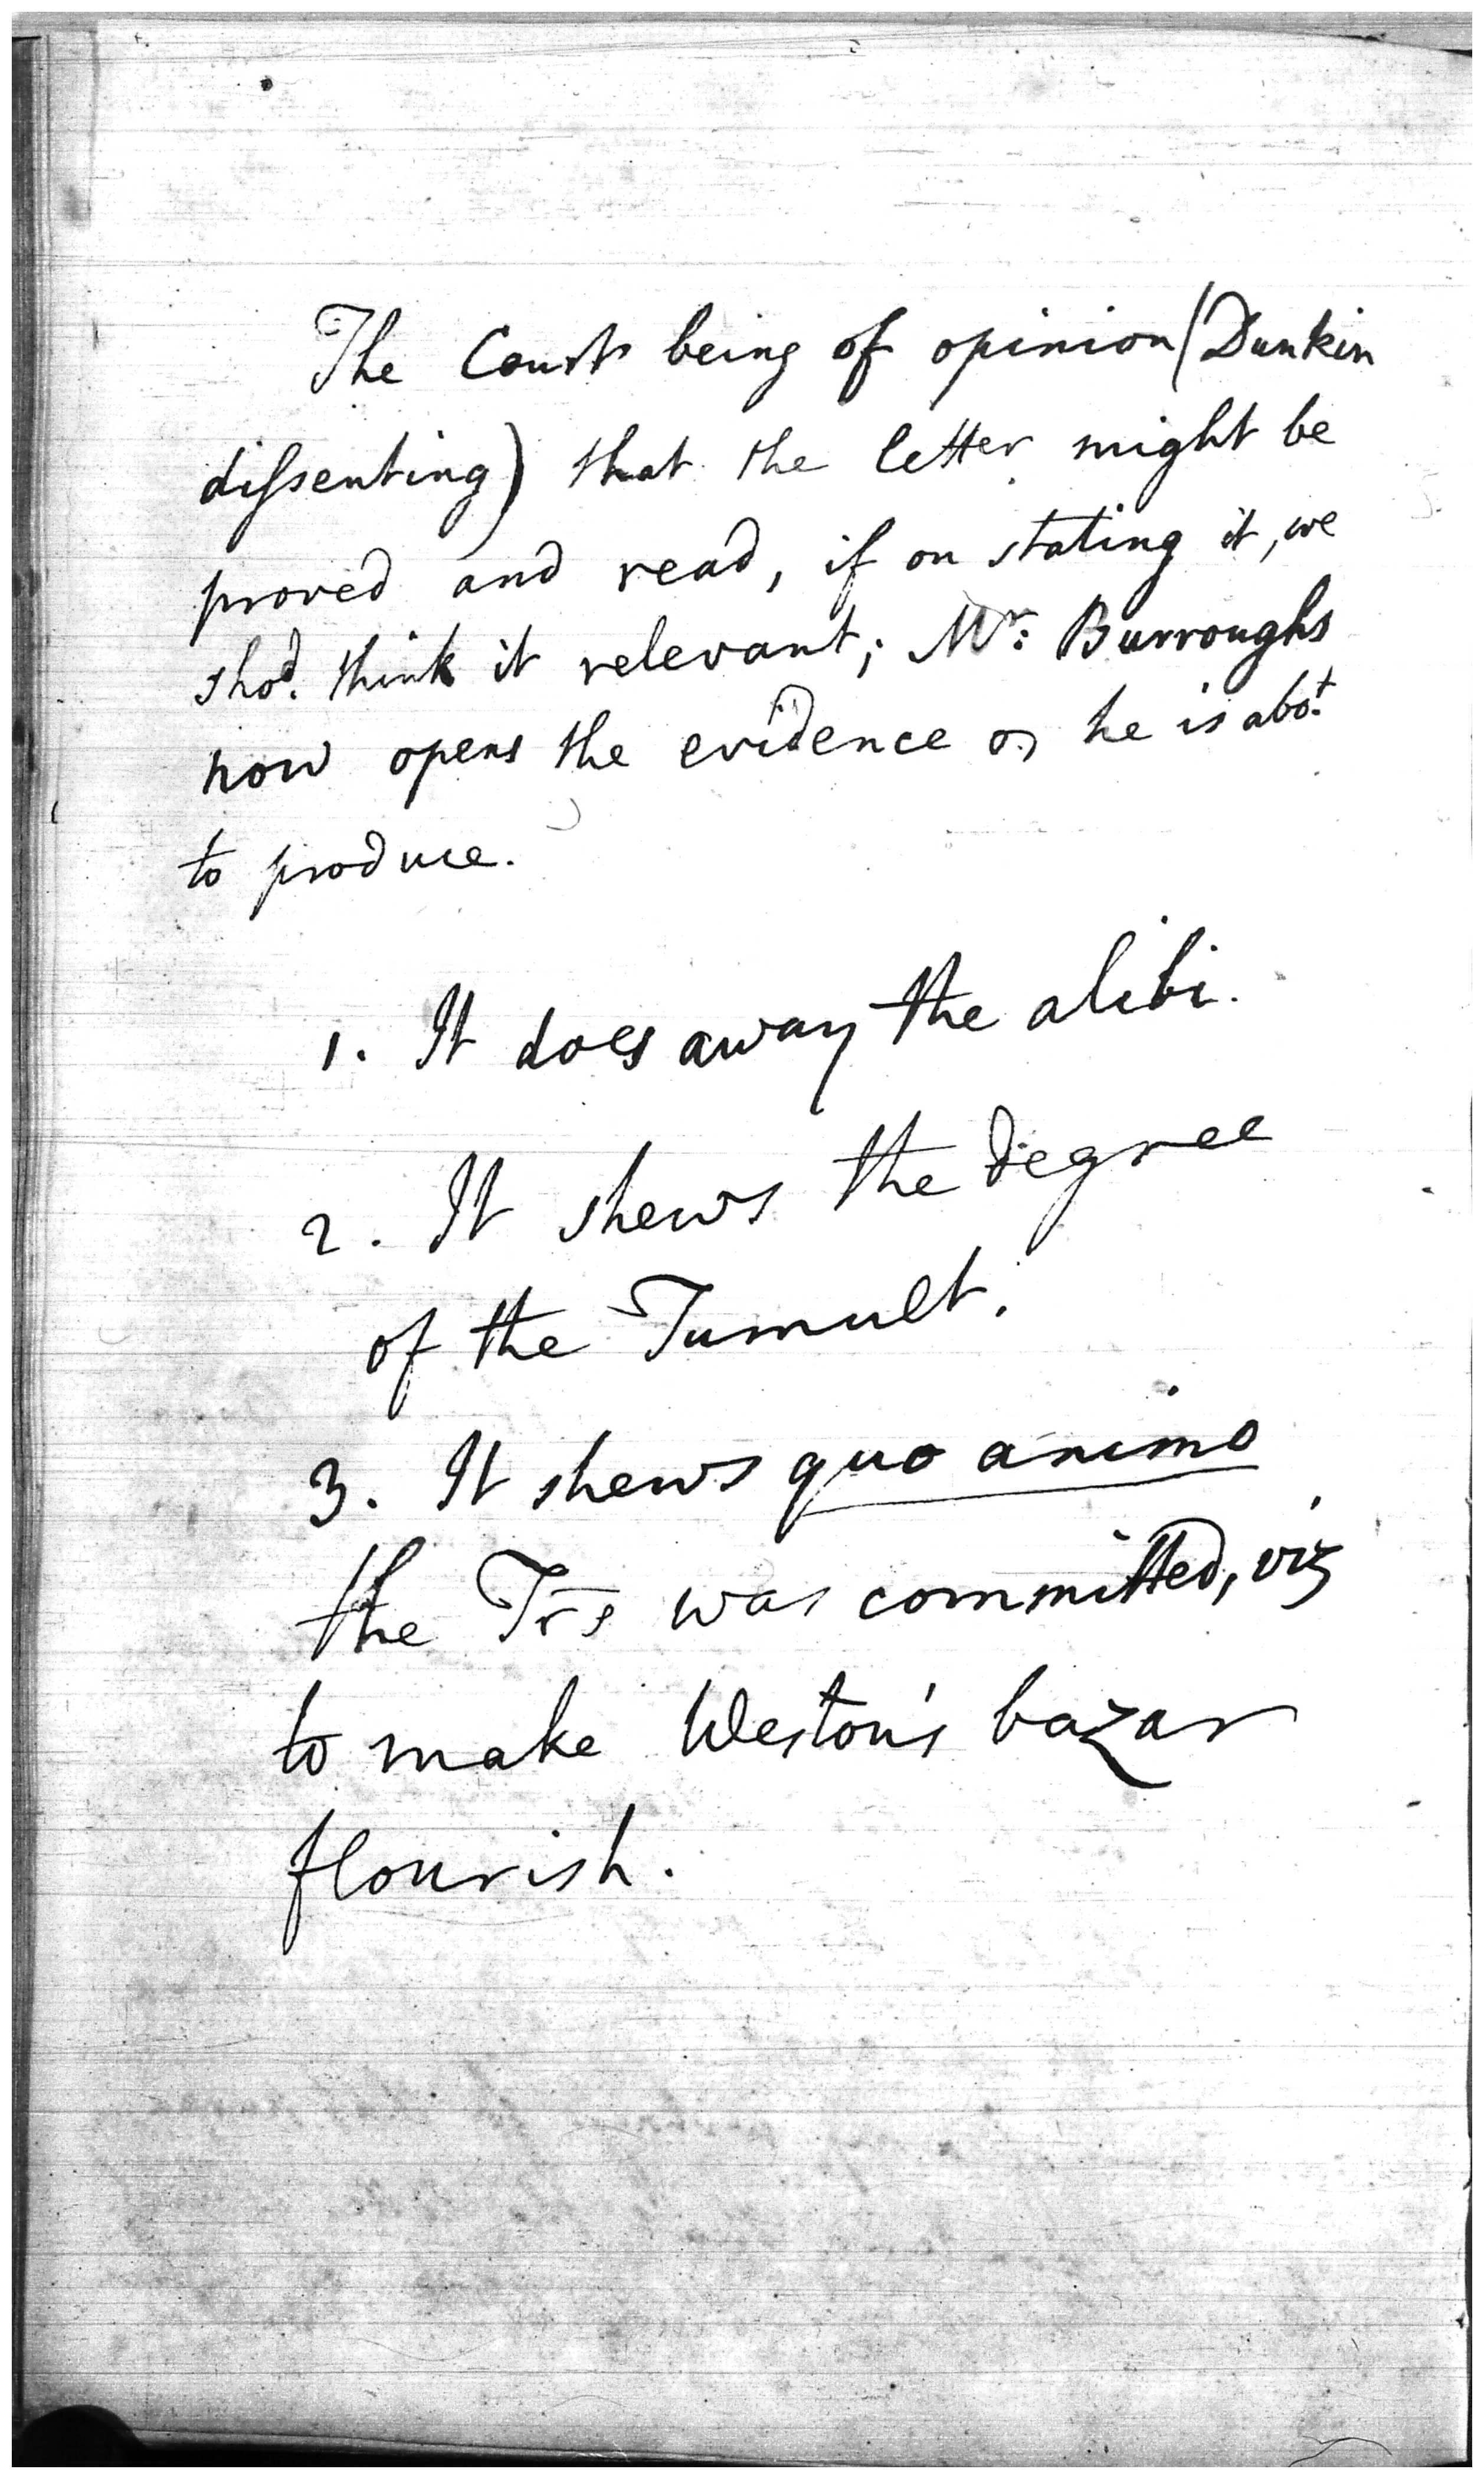 The Court being of opinion (Dunkin
dissenting) that the letter might be
proved and read, if on stating it, we
shod. think it relevant; Mr: Burroughs
now opens the evidence he is abot.
to produce.
1. It does away the alibi.
2. It shews the degree
of the Tumult.
3. It shews quo animo
the Trs was committed, viz
to make Weston's bazar
flourish.